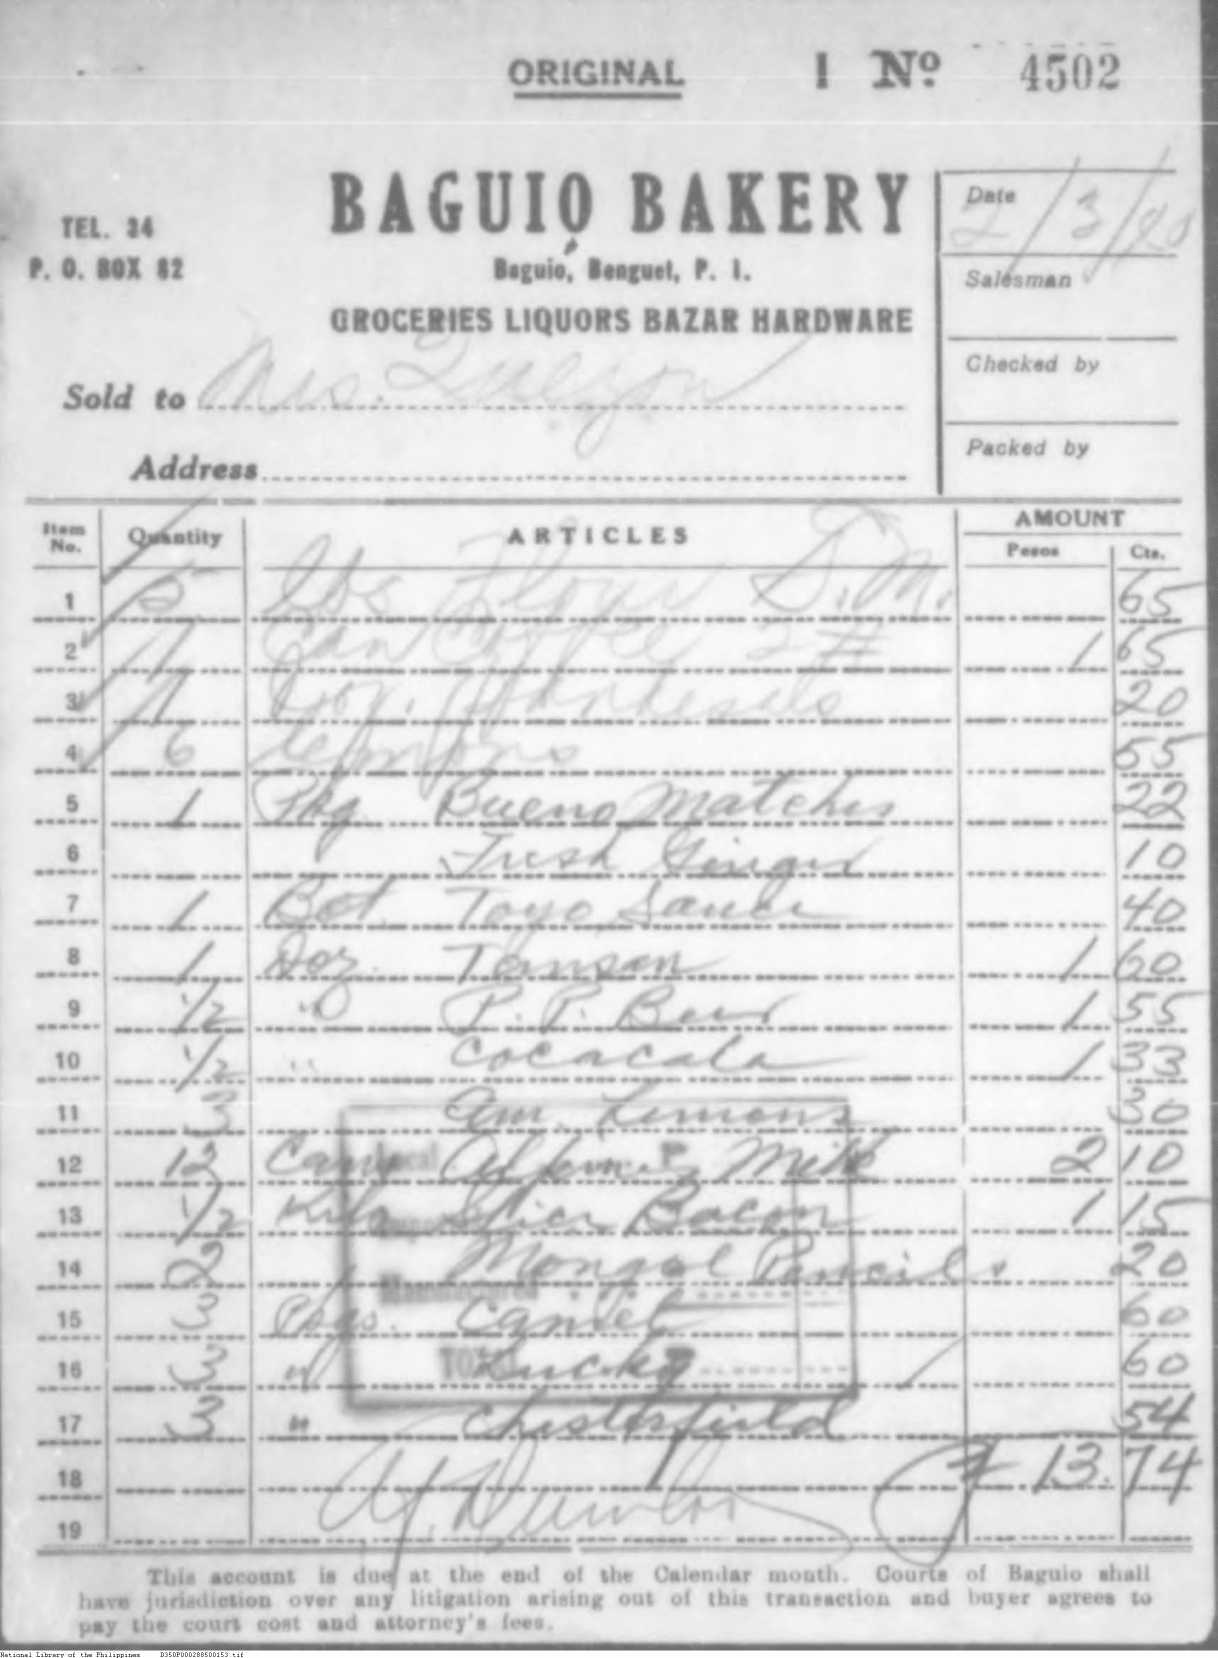 ORIGINAL
1 Nº 4502
BAGUIO BAKERY
TEL. 34
P. O. BOX 82
Baguio, Benguet, P. I.
GROCERIES LIQUORS BAZAR HARDWARE
Date 2/3/
Salesman
Checked by
Packed by
Sold to Mrs. Quezon
Address
Item No. Quantity ARTICLES AMOUNT
Pesos Cts.
1 5 Lbs Flour S.M. 65
2 1 Can Coffee 2# 1 65
3 1 Doz. 20
4 6 Lemons 55
5 1 Pkg. Bueno Matches 22
6 Fresh Ginger 10
7 1 Bot. Toyo Sauce 40
8 1 Doz. Tansan 1 60
9 1/2 " P. P. Beer 1 55
10 1/2 " Cocacala 1 33
11 3 Am. Lemons 30
12 12 Cans Milk 2 10
13 1/2 Kilo Slice Bacon 1 15
14 2 Mongol Pencils 20
15 3 Pkgs. Camel 60
16 3 " Lucky 60
17 3 " Chesterfield 54
18 ₱ 13.74
19
Local
Manufactured
TOTAL
This account is due at the end of the Calendar month. Courts of Baguio shall
have jurisdiction over any litigation arising out of this transaction and buyer agrees to
pay the court cost and attorney's fees.
National Library of the Philippines D350P000288500153.tif